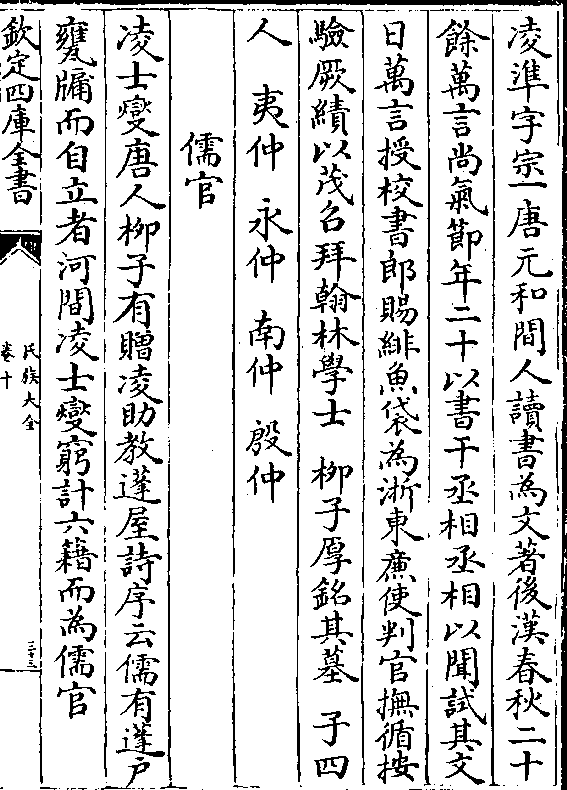 凌準字宗一唐元和間人讀書為文著後漢春秋二十
餘萬言尚氣節年二十以書干丞相丞相以聞試其文
日萬言授校書郎賜緋魚袋為浙東㢘使判官撫循按
驗厥績以茂名拜翰林學士 柳子厚銘其墓 子四
人 夷仲 永仲 南仲 殷仲
儒官
凌士燮唐人柳子有贈凌助教蓬屋詩序云儒有蓬戶
甕牖而自立者河間凌士燮窮討六籍而為儒官
欽定四庫全書
氏族大全
卷十
三十三